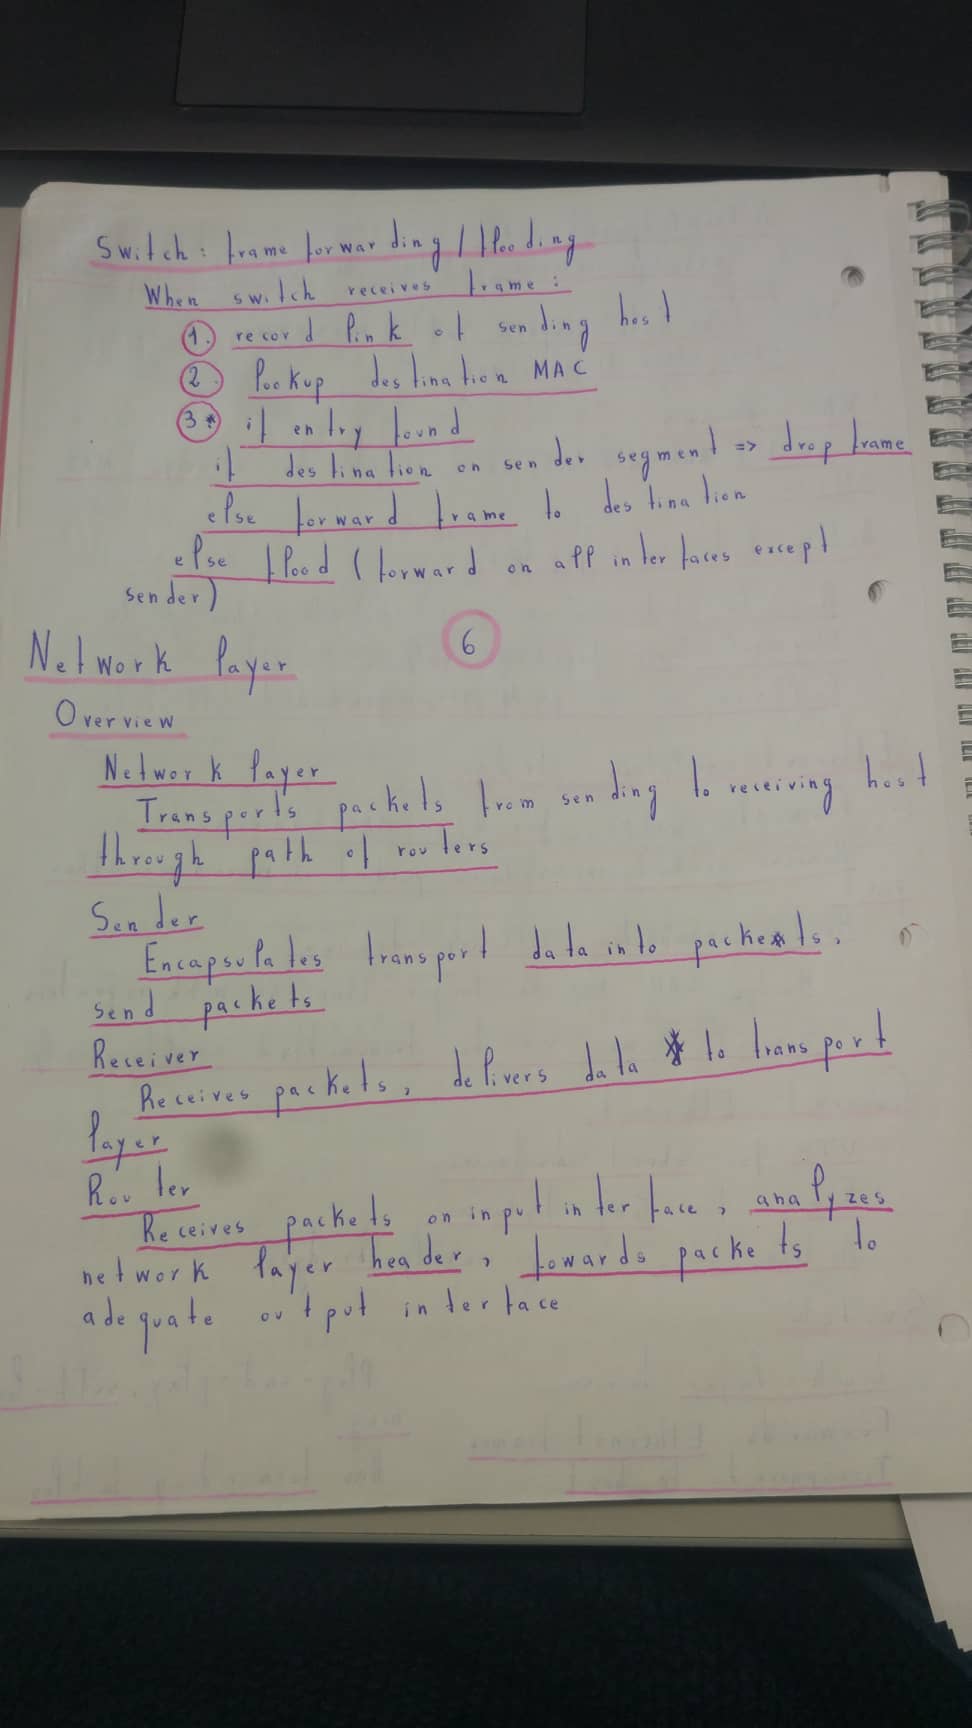 Switch: frame forwarding / flooding
When switch receives frame:
1. record link of sending host
2. lookup destination MAC
3. if entry found
if destination on sender segment => drop frame
else forward frame to destination
else flood (forward on all interfaces except
sender)
6
Network layer
Overview
Network layer
Transports packets from sending to receiving host
through path of routers
Sender
Encapsulates transport data into packets,
send packets
Receiver
Receives packets, delivers data to transport
layer
Router
Receives packets on input interface, analyzes
network layer header, fowards packets to
adequate output interface